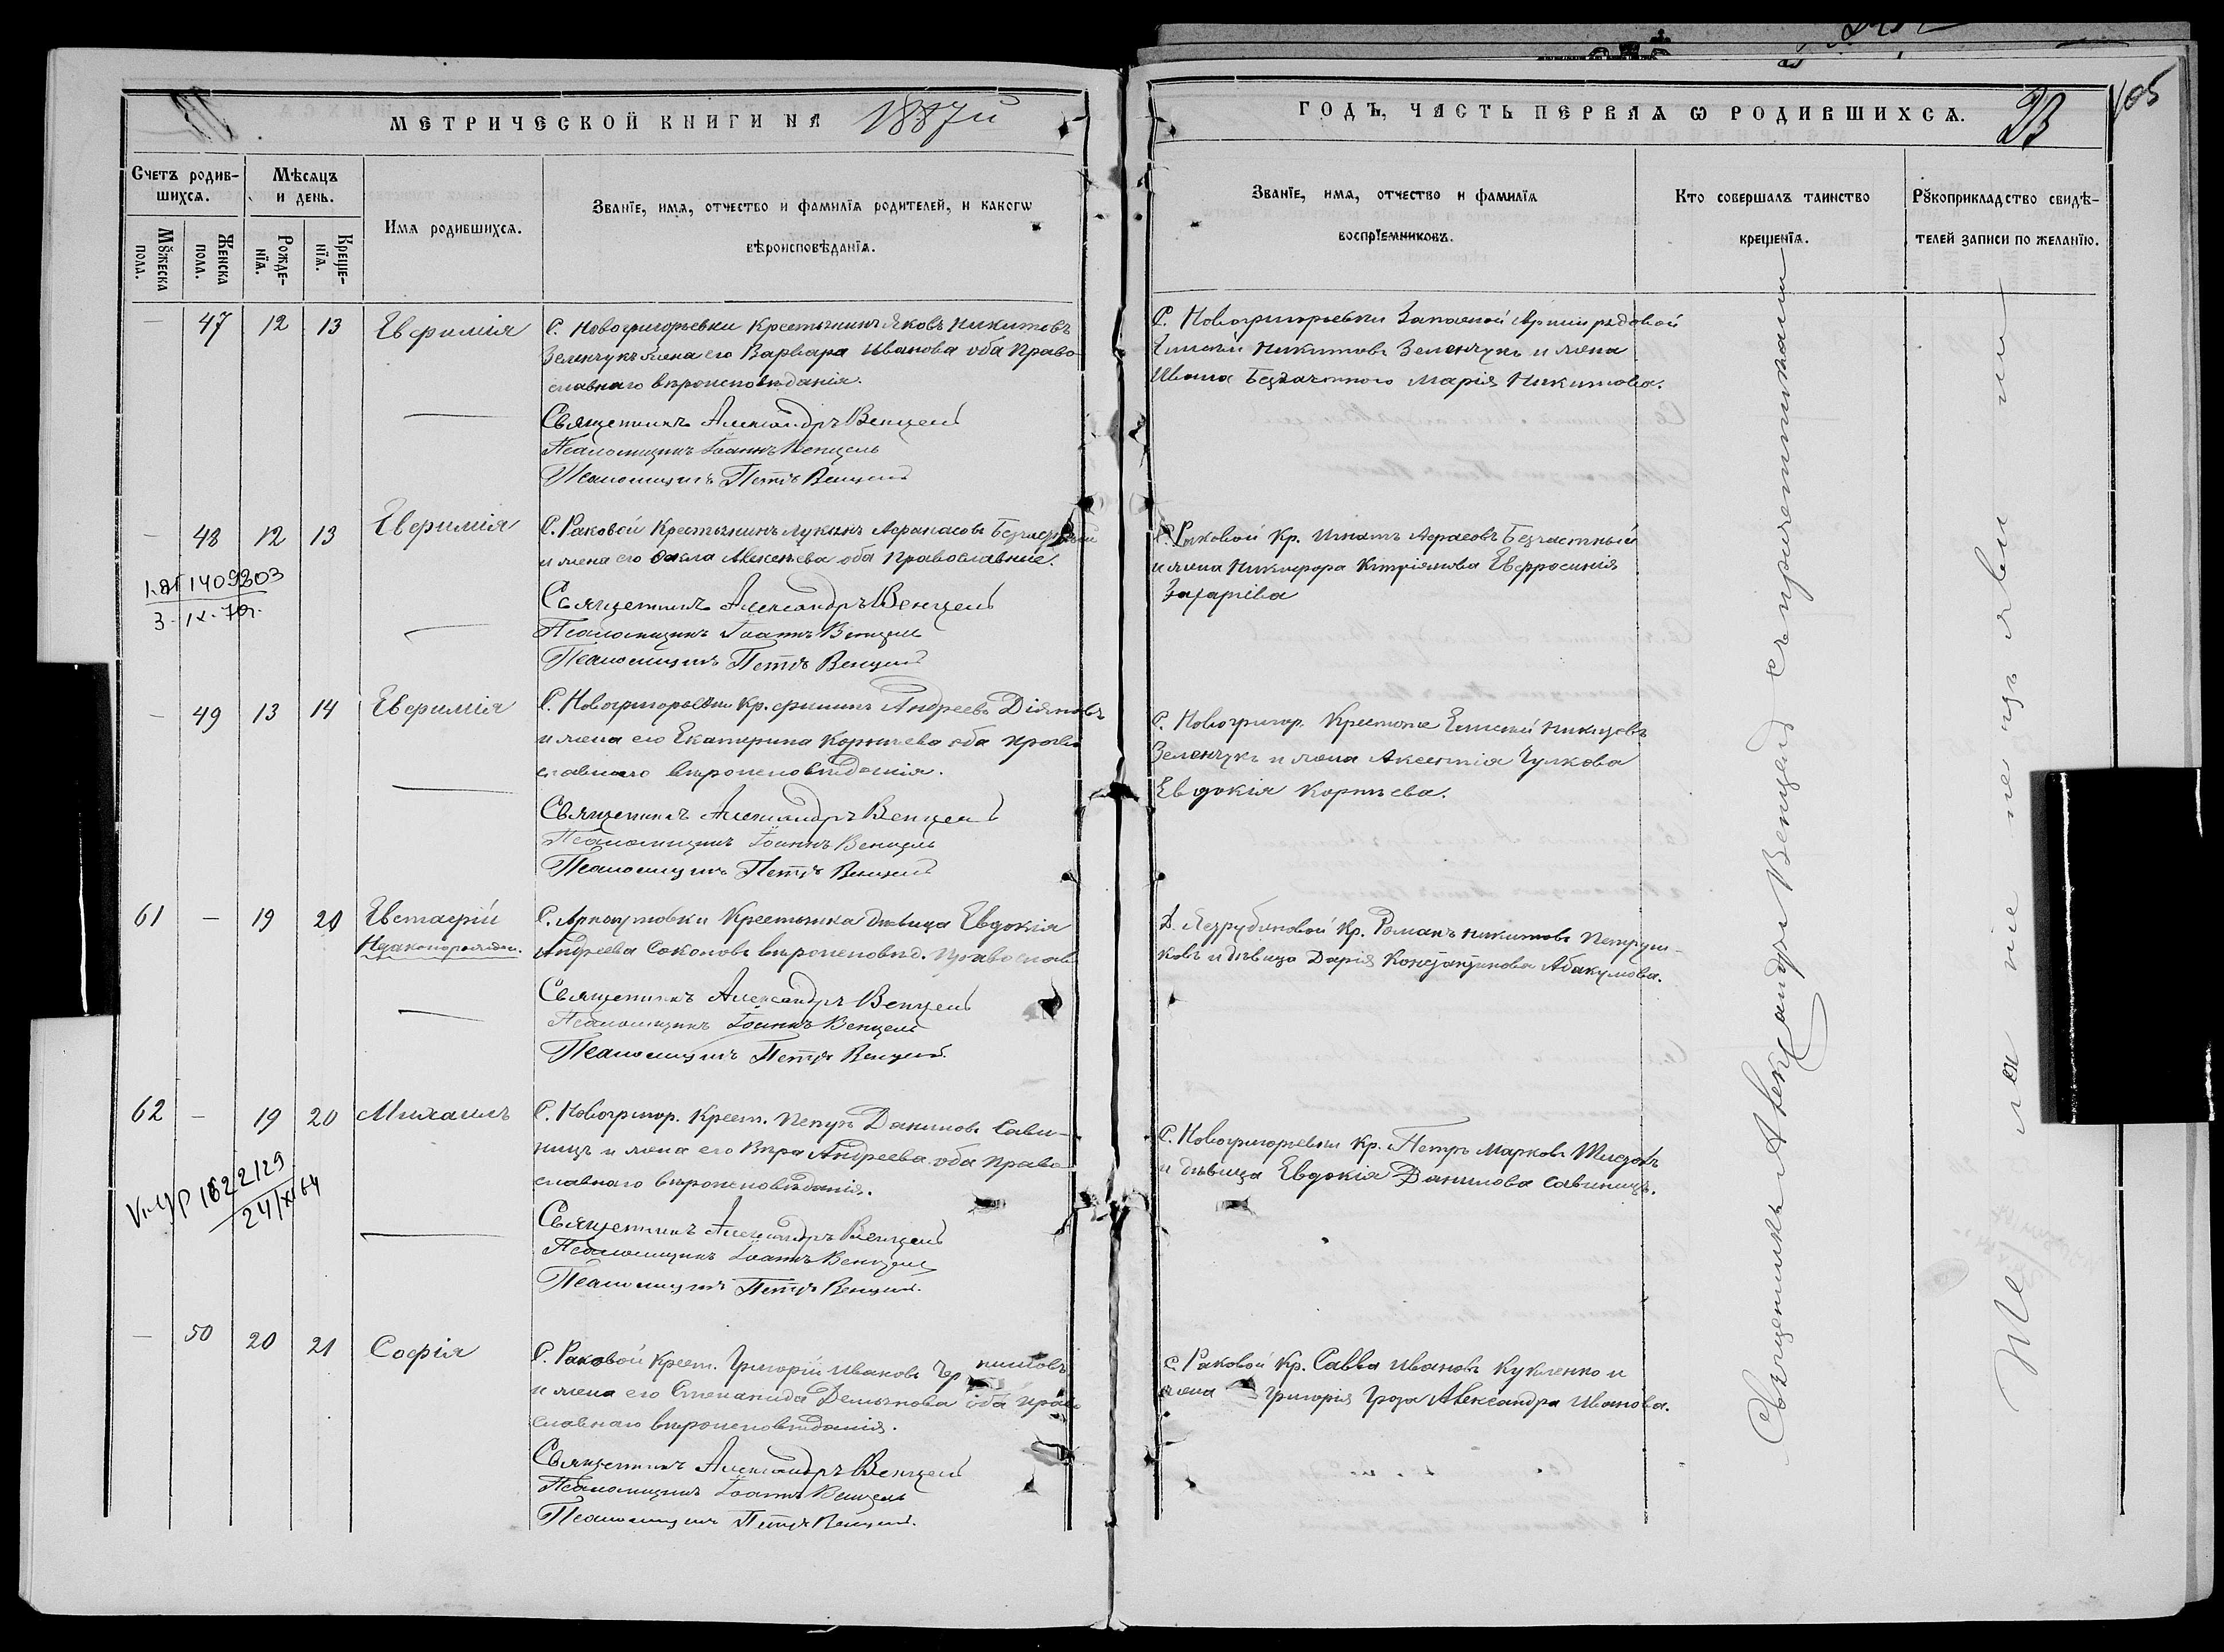 МЕТРИЧЕСКОЙ КНИГИ НА 1887й
ГОДЪ, ЧАСТЬ ПЕРВАЯ Ѡ РОДИВШИХСѦ.
105
Счетъ родив-
шихсѧ.
Мѣсѧцъ
и день.
Имѧ родившихсѧ.
Званїе, имѧ, отчество и фамилїѧ родителей, и какогѡ
вѣроисповѣданїѧ.
Мꙋжеска
пола.
Женска
пола.
Рожде-
нїѧ.
Креще-
нїѧ.
Званїе, имѧ, отчество и фамилїѧ
воспрїемниковъ.
Кто совершалъ таинство
крещенїѧ.
Рꙋкоприкладство свидѣ-
телей записи по желанїю.
— 47 12 13 Евфимія
С. Новогригорьевки Крестьянинъ Яковъ Никитовъ
Зеленчукъ жена его Варвара Иванова оба Право-
славнаго вѣроисповѣданія.
Священникъ Александръ Венцель
Псаломщикъ Іоаннъ Венцель
Псаломщикъ Петръ Венцель
С. Новогригорьевки Запасной Арміи рядовой
Елисей Никитовъ Зеленчукъ и жена
Ивана Марія Никитова.
— 48 12 13 Евфимія
С. Раковой Крестьянинъ Лукіанъ Афанасовъ
и жена его Фекла Алексѣева оба Православные.
Священникъ Александръ Венцель
Псаломщикъ Іоаннъ Венцель
Псаломщикъ Петръ Венцель
С. Раковой Кр. Игнатъ Безчастный
и жена Никифора Евфросинія
Захаріева
1409803
3-IX-70г.
— 49 13 14 Евфимія
С. Новогригорьевки Кр. Филипъ Андреевъ Діяновъ
и жена его Екатерина Корнѣева оба Право-
славнаго вѣроисповѣданія.
Священникъ Александръ Венцель
Псаломщикъ Іоаннъ Венцель
Псаломщикъ Петръ Венцель
С. Новогригор. Елисей Никитовъ
Зеленчукъ и жена Аксентія Чулкова
Евдокія Корнѣева.
61 — 19 20 Евстафій
Незаконорожден.
С. Арнаутовки Крестьянка дѣвица Евдокія
Андреева Соколовъ вѣроисповѣд. Православ
Священникъ Александръ Венцель
Псаломщикъ Іоаннъ Венцель
Псаломщикъ Петръ Венцель
Д. Кр. Романъ Никитовъ Петруш-
ковъ и дѣвица Дарія Константинова Абакумова.
62 — 19 20 Михаилъ
С. Новогригор. Крест. Данииловъ Сави-
ницъ и жена его Вѣра Андреева оба Право-
славнаго вѣроисповѣданія.
Священникъ Александръ Венцель
Псаломщикъ Іоаннъ Венцель
Псаломщикъ Петръ Венцель
С. Новогригорьевки Кр. Петръ Марковъ
и дѣвица Евдокія Данилова Савиницъ.
1622129
24/XI 64
— 50 20 21 Софія
С. Раковой Крест. Григорій Ивановъ
и жена его Степанида Демьянова оба Право-
славнаго вѣроисповѣданія.
Священникъ Александръ Венцель
Псаломщикъ Іоаннъ Венцель
Псаломщикъ Петръ Венцель
С. Раковой Кр. Савва Ивановъ Кукленко и
жена Григорія Гроза Александра Иванова.
Священникъ Александръ Венцель съ причетниками
Желаніе не изъявили